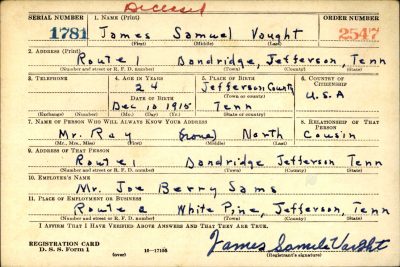 Deceased
SERIAL NUMBER 1. NAME (Print) ORDER NUMBER
1781 James Samuel Vought 2547
(First) (Middle) (Last)
2. ADDRESS (Print)
Route 1 Dandridge, Jefferson, Tenn
(Number and street or R. F. D. number) (Town) (County) (State)
3. TELEPHONE 4. AGE IN YEARS 5. PLACE OF BIRTH 6. COUNTRY OF CITIZENSHIP
24 Jefferson County
DATE OF BIRTH (Town or county) U.S.A
Dec 10 1915 Tenn
(Exchange) (Number) (Mo.) (Day) (Yr.) (State or country)
7. NAME OF PERSON WHO WILL ALWAYS KNOW YOUR ADDRESS 8. RELATIONSHIP OF THAT PERSON
Mr. Ray (none) North Cousin
(Mr., Mrs., Miss) (First) (Middle) (Last)
9. ADDRESS OF THAT PERSON
Route 1 Dandridge Jefferson Tenn
(Number and street or R. F. D. number) (Town) (County) (State)
10. EMPLOYER'S NAME
Mr. Joe Berry Sams
11. PLACE OF EMPLOYMENT OR BUSINESS
Route 2 White Pine, Jefferson, Tenn
(Number and street or R. F. D. number) (Town) (County) (State)
I AFFIRM THAT I HAVE VERIFIED ABOVE ANSWERS AND THAT THEY ARE TRUE.
REGISTRATION CARD
D. S. S. Form 1 (over) 16—17105 James Samule Vaught
(Registrant's signature)